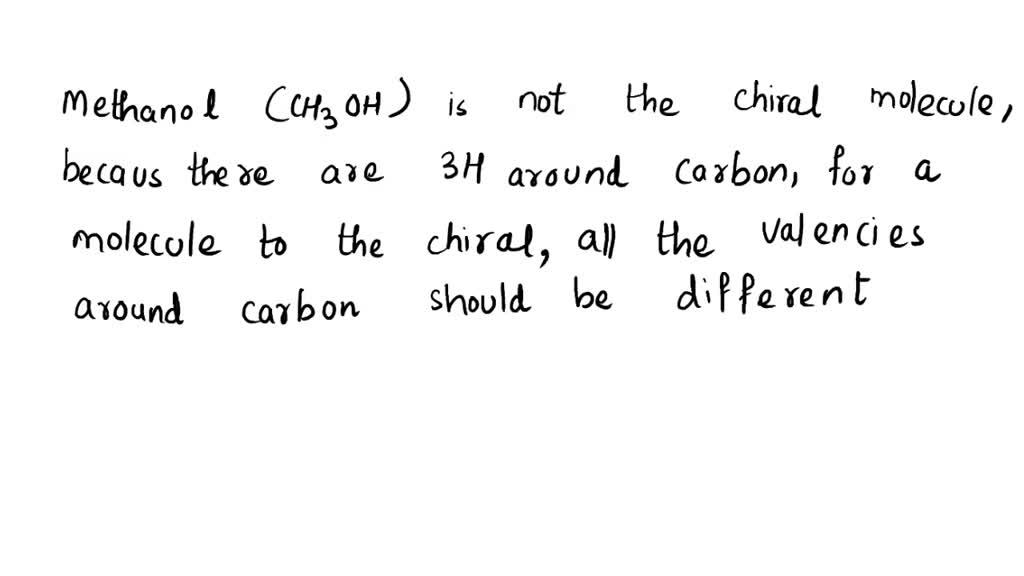 Methanol (CH₃OH) is not the chiral molecule,
becaus there are 3H around carbon, for a
molecule to the chiral, all the valencies
around carbon should be different